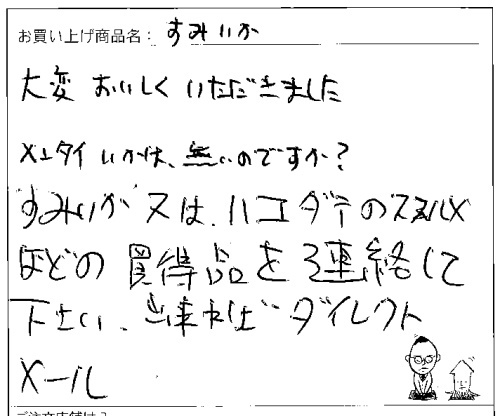 お買い上げ商品名： すみいか
大変 おいしく いただきました
メユタイ いかは、無いのですか？
すみいか 又は、ハコダテのスルメ
ほどの 買得品を 連絡して
下さい、出来れば ダイレクト
メール